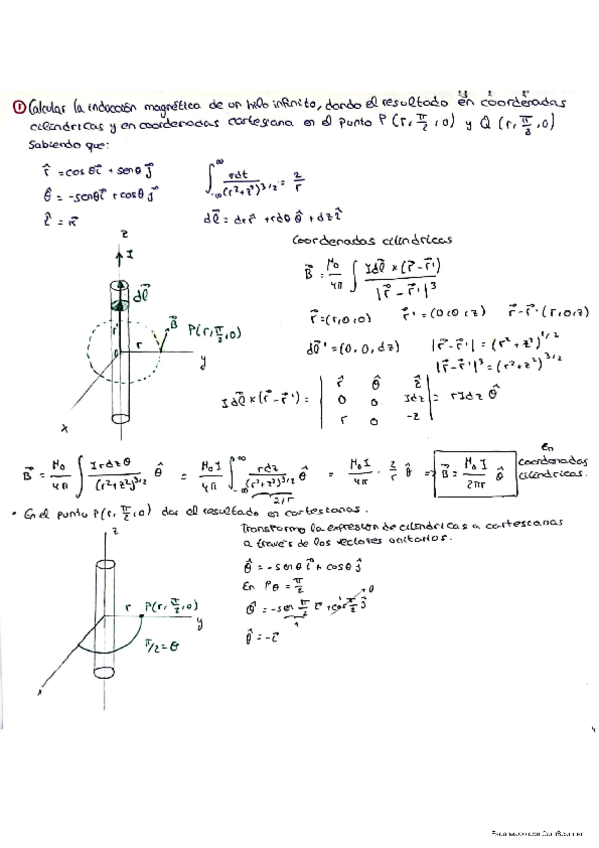 ① Calcular la inducción magnética de un hilo infinito, dando el resultado en coordenadas
cilíndricas y en coordenadas cartesiana en el punto P (r, π/2, 0) y Q (r, π/3, 0)
Sabiendo que:
r̂ = cos θ i⃗ + sen θ j⃗
∫_{-∞}^{∞} rdt/(r²+z²)^{3/2} = 2/r
θ̂ = -senθ i⃗ + cosθ j⃗
dl⃗ = dr r̂ + rdθ θ̂ + dz ẑ
Coordenadas cilíndricas
z
I
dl⃗
B⃗ = μ₀/4π ∫ Idl⃗ × (r⃗ - r⃗')/|r⃗ - r⃗'|³
r⃗ = (r,0,0) r⃗' = (0,0,z) r⃗ - r⃗' (r,0,z)
r'
B⃗ P(r, π/2, 0)
0 r
y
x
dl⃗' = (0,0,dz) |r⃗ - r⃗'| = (r²+z²)^{1/2}
|r⃗ - r⃗'|³ = (r²+z²)^{3/2}
Idl⃗ × (r⃗ - r⃗') = | r̂ θ̂ ẑ |
| 0 0 Idz | = rIdz θ̂
| r 0 -z |
B⃗ = μ₀/4π ∫ Irdzθ/(r²+z²)^{3/2} θ̂ = μ₀I/4π ∫_{-∞}^{∞} rdz/(r²+z²)^{3/2} θ̂ = μ₀I/4π · 2/r θ̂ ⇒ B⃗ = μ₀ I/2πr θ̂
2/r
En
coordenadas
cilíndricas.
• En el punto P(r, π/2, 0) dar el resultado en cartesianas.
Transformo la expresión de cilíndricas a cartesianas
a través de los vectores unitarios.
z
r P(r, π/2, 0)
y
π/2 = θ
x
θ̂ = -sen θ i⃗ + cos θ j⃗
En Pθ = π/2
θ̂ = -sen π/2 i⃗ + cos π/2 j⃗
1
0
θ̂ = -i⃗